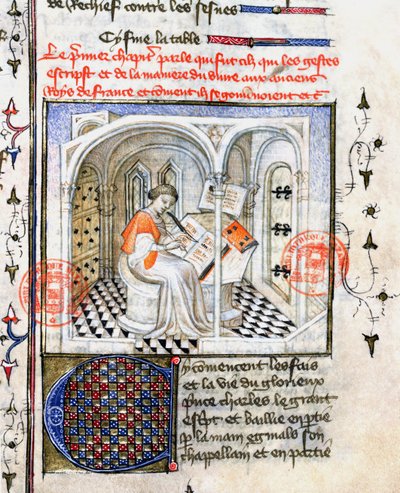 de Rechief contre les sesnes
Cy fine la table
Le premier chapitre parle qui fut cil qui les gestes
escript et de la maniere du viure aux anciens
Roys de france et comment ilz se gouuernoient etc
Cy comencent les fais
et la vie du glorieux
prince charles le grant
escript et baillie en ptie
p la main egmals son
chappellain et en partie